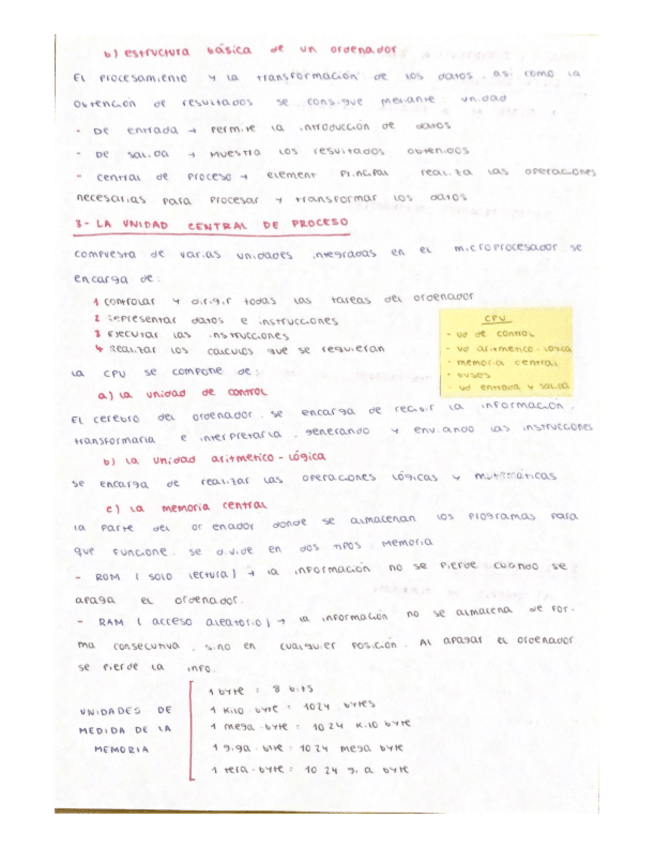 b) estructura básica de un ordenador
El procesamiento y la transformación de los datos, así como la
obtención de resultados se consigue mediante unidad
- De entrada → permite la introducción de datos
- De salida → muestra los resultados obtenidos
- central de proceso → element principal realiza las operaciones
necesarias para procesar y transformar los datos
3- LA UNIDAD CENTRAL DE PROCESO
compuesta de varias unidades integradas en el microprocesador se
encarga de:
1 controlar y dirigir todas las tareas del ordenador
2 representar datos e instrucciones
3 Ejecutar las instrucciones
4 Realizar los cálculos que se requieran
CPU
- ud de control
- ud aritmetico-lógica
- memoria central
- buses
- ud entrada y salida
la CPU se compone de:
a) la unidad de control
El cerebro del ordenador. se encarga de recibir la información,
transformarla e interpretarla, generando y enviando las instrucciones
b) la unidad aritmetico-lógica
se encarga de realizar las operaciones lógicas y matemáticas
c) la memoria central
la parte del or enador donde se almacenan los programas para
que funcione. se divide en dos tipos memoria
- ROM (solo lectura) → la información no se pierde cuando se
apaga el ordenador.
- RAM (acceso aleatorio) → la información no se almacena de for-
ma consecutiva, sino en cualquier posición. Al apagar el ordenador
se pierde la info.
UNIDADES DE
MEDIDA DE LA
MEMORIA
1 byte = 8 bits
1 kilo-byte = 1024 bytes
1 mega-byte = 1024 kilo byte
1 giga-byte = 1024 mega byte
1 tera-byte = 1024 giga byte